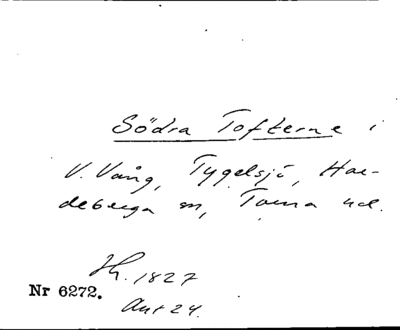 Södra Tofterne i
V. Vång, Tygelsjö, Har-
deberga sn, Torna hd.
Jh. 1827
Nr 6272.
Akt 24.